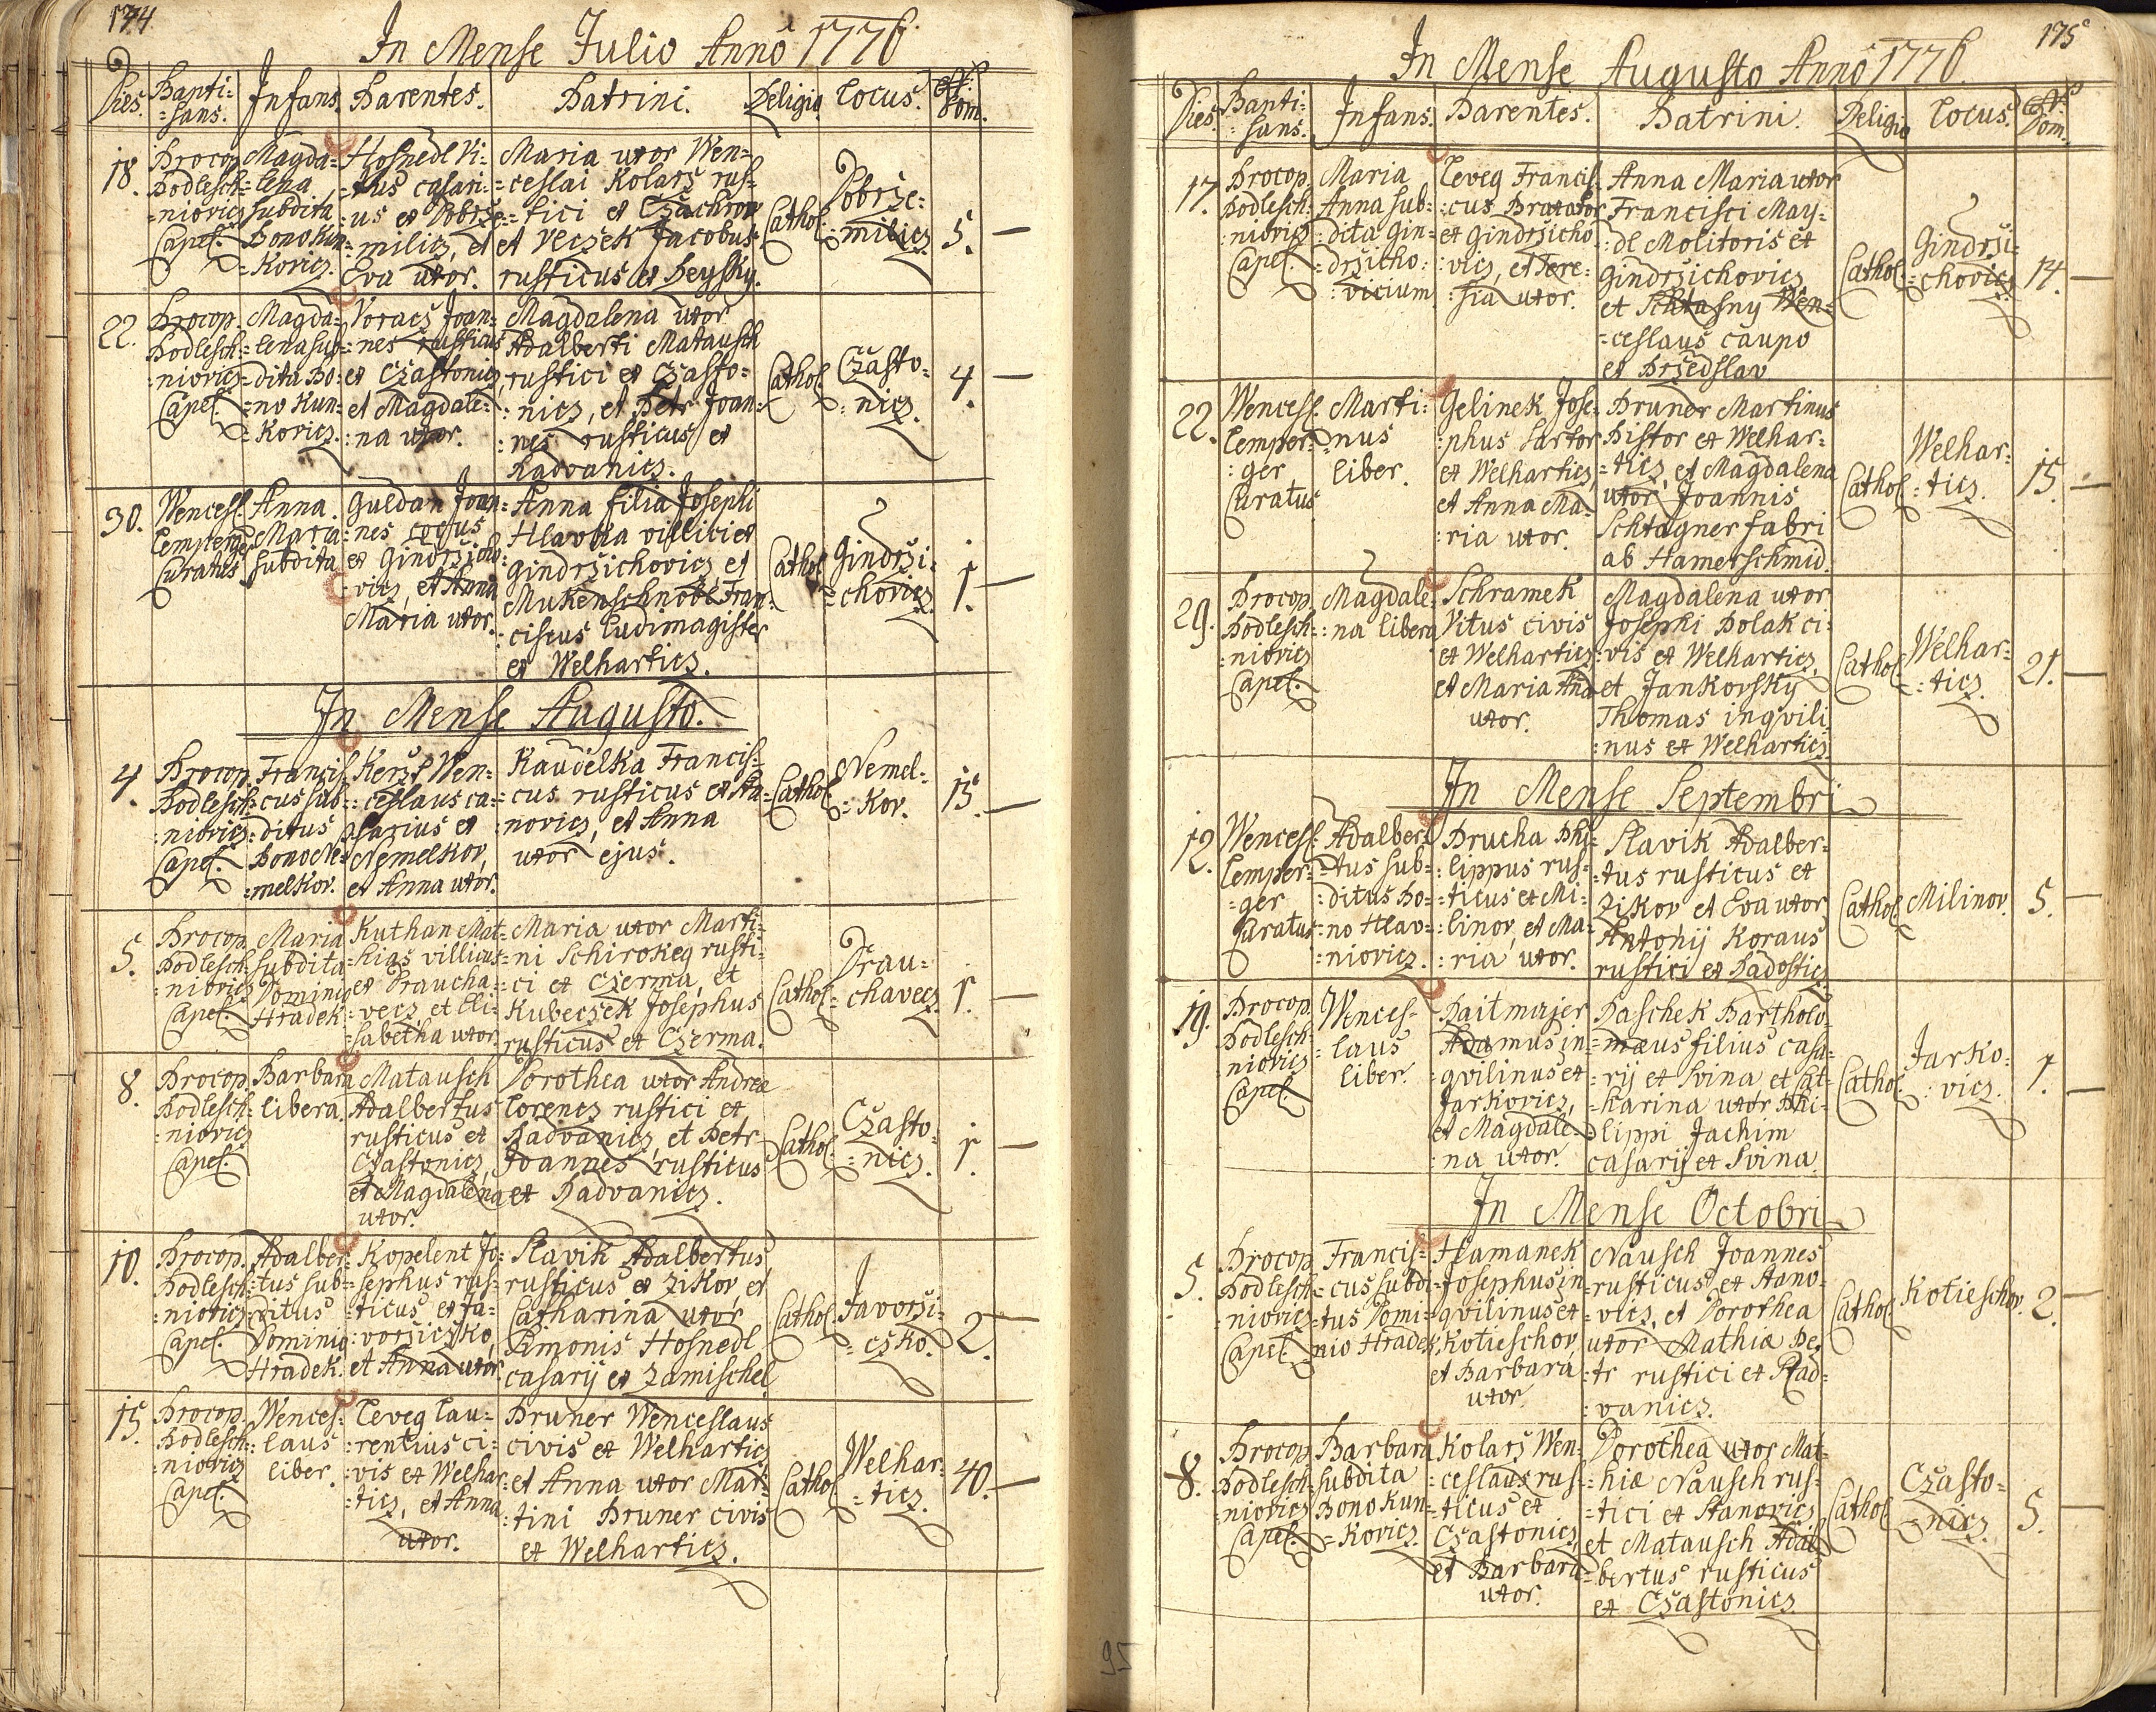 174
In Mense Julio Anno 1776.
Dies. Bapti= =sans. Infans. Parentes. Patrini. Religio Locus. N: Dom.
18. Procop. Podlesch= =niovicz Capel.
Magda= =lena subdita Bono Kun= =kovicz.
Hosnedl Vi= =tus casari= =us ex Dobrze= =milicz, et Eva uxor.
Maria uxor Wen= =ceslai Kolarz rus= =tici ex Czachrow et Veczek Jacobus rusticus ex Peysky.
Cathol. Dobrze= =milicz. 5.
22. Procop. Podlesch= =niovicz Capel.
Magda= =lena sub= =dita Bo= =no Kun= =kovicz.
Voracz Joan= =nes rusticus ex Czastonicz et Magdale= =na uxor.
Magdalena uxor Adalberti Matausch rustici ex Czasto= =nicz, et Petr Joan= =nes rusticus ex Radvanicz.
Cathol. Czasto= =nicz. 4.
30. Wencesl. Lemperger Curatus
Anna Maria subdita
Guldan Joan= =nes coqus ex Gindrzicho= =vicz, et Anna Maria uxor.
Anna filia Josephi Hlavka villici ex Gindrzichovicz et Mukenschnobl Fran= =ciscus Ludimagister ex Welharticz.
Cathol. Gindrzi= =chovicz. 1.
In Mense Augusto.
4. Procop. Podlesch= =niovicz Capel.
Francis= =cus sub= =ditus Bono Ne= =melkov.
Kerzl Wen= =ceslaus ca= =sarius ex Nemelkov, et Anna uxor.
Kaudelka Francis= =cus rusticus ex Sta= =novicz, et Anna uxor ejus.
Cathol. Nemel= =kov. 15.
5. Procop. Podlesch= =niovicz Capel.
Maria subdita Dominio Hradek.
Kuthan Mat= =hias villicus ex Draucha= =vecz, et Eli= =sabetha uxor.
Maria uxor Marti= =ni Schirokeg rusti= =ci ex Czerma, et Kubeczek Josephus rusticus ex Czerma.
Cathol. Drau= =chavecz. 1.
8. Procop. Podlesch= =niovicz Capel.
Barbara libera.
Matausch Adalbertus rusticus ex Czastonicz, et Magdalena uxor.
Dorothea uxor Andreæ Lorencz rustici ex Radvanicz, et Petr Joannes rusticus ex Radvanicz.
Cathol. Czasto= =nicz. 1.
10. Procop. Podlesch= =niovicz Capel.
Adalber= =tus sub= =ditus Dominio Hradek.
Kopelent Jo= =sephus rus= =ticus ex Ja= =vorziczko, et Anna uxor.
Slavik Adalbertus rusticus ex Zikov, et Catharina uxor Simonis Hosnedl casarij ex Zamischel.
Cathol. Javorzi= =czko. 2.
15. Procop. Podlesch= =niovicz Capel.
Wences= =laus liber.
Ceveg Lau= =rentius ci= =vis ex Welhar= =ticz, et Anna uxor.
Pruner Wenceslaus civis ex Welharticz et Anna uxor Mar= =tini Pruner civis ex Welharticz.
Cathol. Welhar= =ticz. 40.
175
In Mense Augusto Anno 1776.
Dies. Bapti= =sans. Infans. Parentes. Patrini. Religio Locus. N: Dom.
17. Procop. Podlesch= =niovicz Capel.
Maria Anna sub= =dita Gin= =drzicho= =vicium
Ceveg Francis= =cus Braxator ex Gindrzicho= =vicz, et There= =sia uxor.
Anna Maria uxor Francisci May= =dl Molitoris ex Gindrzichovicz et Schtasny Wen= =ceslaus caupo ex Przedslav
Cathol. Gindrzi= =chovicz. 14.
22. Wencesl. Lemper= =ger Curatus
Marti= =nus liber.
Gelinek Jose= =phus Sartor ex Welharticz, et Anna Ma= =ria uxor.
Pruner Martinus Pistor ex Welhar= =ticz, et Magdalena uxor Joannis Schtagner fabri ab Hamerschmid.
Cathol. Welhar= =ticz. 15.
29. Procop. Podlesch= =niovicz Capel.
Magdale= =na libera
Schramek Vitus civis ex Welharticz et Maria Anna uxor.
Magdalena uxor Josephi Polak ci= =vis ex Welharticz, et Jankovsky Thomas inqvili= =nus ex Welharticz.
Cathol. Welhar= =ticz. 21.
In Mense Septembri
12. Wencesl. Lemper= =ger Curatus
Adalber= =tus sub= =ditus Bo= =no Hlav= =niovicz.
Prucha Phi= =lippus rus= =ticus ex Mi= =linov, et Ma= =ria uxor.
Slavik Adalber= =tus rusticus ex Zikov et Eva uxor Antonij Koraus rustici ex Radosticz.
Cathol. Milinov. 5.
19. Procop. Podlesch= =niovicz Capel.
Wences= =laus liber.
Raitmajer Adamus in= =qvilinus ex Jarkovicz, et Magdale= =na uxor.
Paschek Bartholo= =mæus filius casa= =rij ex Svina et Cat= =harina uxor Phi= =lippi Jachim casarij ex Svina.
Cathol. Jarko= =vicz. 1.
In Mense Octobri
5. Procop. Podlesch= =niovicz Capel.
Francis= =cus subdi= =tus Domi= =nio Hradek.
Hamanek Josephus in= =qvilinus ex Kotieschov, et Barbara uxor.
Nausch Joannes rusticus ex Stano= =vicz, et Dorothea uxor Mathiæ Pe= =tr rustici ex Rad= =vanicz.
Cathol. Kotieschov. 2.
8. Procop. Podlesch= =niovicz Capel.
Barbara subdita Bono Kun= =kovicz.
Kolarz Wen= =ceslaus rus= =ticus ex Czastonicz, et Barbara uxor.
Dorothea uxor Mat= =hiæ Nausch rus= =tici ex Stanovicz et Matausch Adal= =bertus rusticus ex Czastonicz.
Cathol. Czasto= =nicz. 5.
95